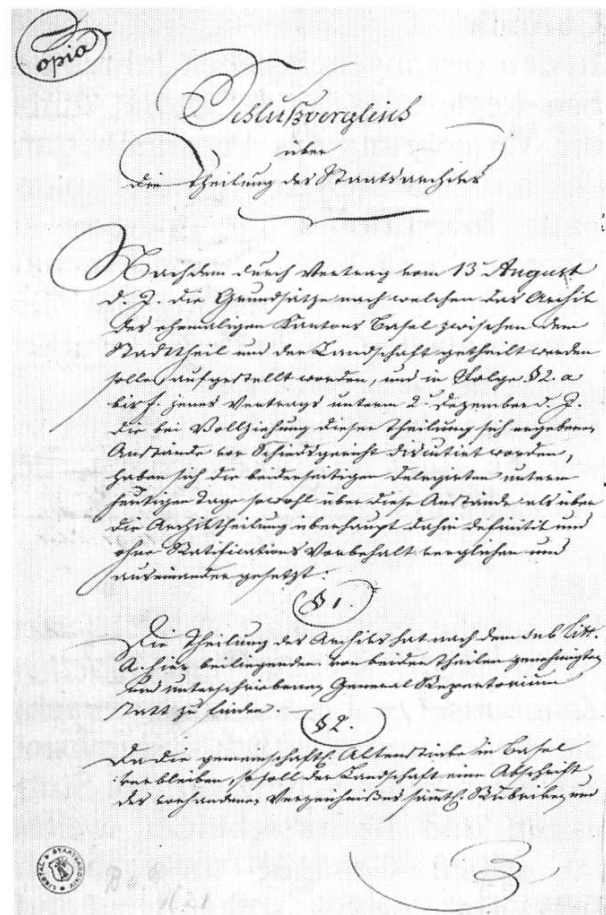 Copia
Schlußvergleich
über
die Theilung des Staatsarchivs
Nachdem durch Vertrag vom 13. August
d. J. die Grundsätze nach welchen das Archiv
des ehemaligen Kantons Basel zwischen dem
Stadttheil und der Landschaft getheilt werden
solle, aufgestellt worden, und in Folge § 2. a
bis f. jenes Vertrags unterm 2. Dezember d. J.
die bei Vollziehung dieser Theilung sich ergebenen
Anstände vor Schiedsgericht discutiert worden,
haben sich die beiderseitigen Delegirten unterm
heutigen Tage sowohl über diese Anstände als über
die Archivtheilung überhaupt dahin definitiv und
ohne Ratifications Vorbehalt verglichen und
auseinander gesetzt.
§ 1.
Die Theilung des Archivs hat nach dem sub Litt.
A. hier beiliegenden von beiden Theilen genehmigten
und unterschriebenen General Repertorium
statt zu finden.
§ 2.
Da die gemeinschaftl. Aktenstücke in Basel
verbleiben, so soll der Landschaft eine Abschrift
der vorhandenen Verzeichnisse sämtl. Rubriken und
STAATSARCHIV